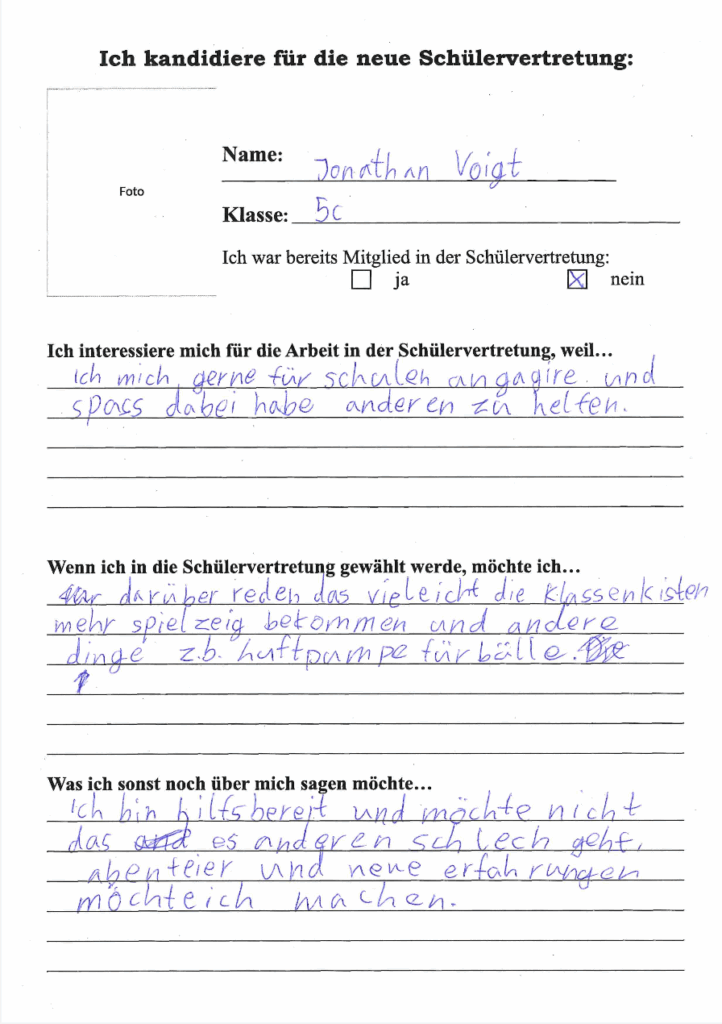 Ich kandidiere für die neue Schülervertretung:
Foto
Name: Jonathan Voigt
Klasse: 5c
Ich war bereits Mitglied in der Schülervertretung:
ja nein
Ich interessiere mich für die Arbeit in der Schülervertretung, weil…
ich mich gerne für schulen angagire und
spass dabei habe anderen zu helfen.
Wenn ich in die Schülervertretung gewählt werde, möchte ich…
darüber reden das vieleicht die Klassenkisten
mehr spielzeig bekommen und andere
dinge z.b. huftpumpe für bälle.
Was ich sonst noch über mich sagen möchte…
Ich bin hilfsbereit und möchte nicht
das es anderen schlech geht,
abenteier und neue erfahrungen
möchteich machen.